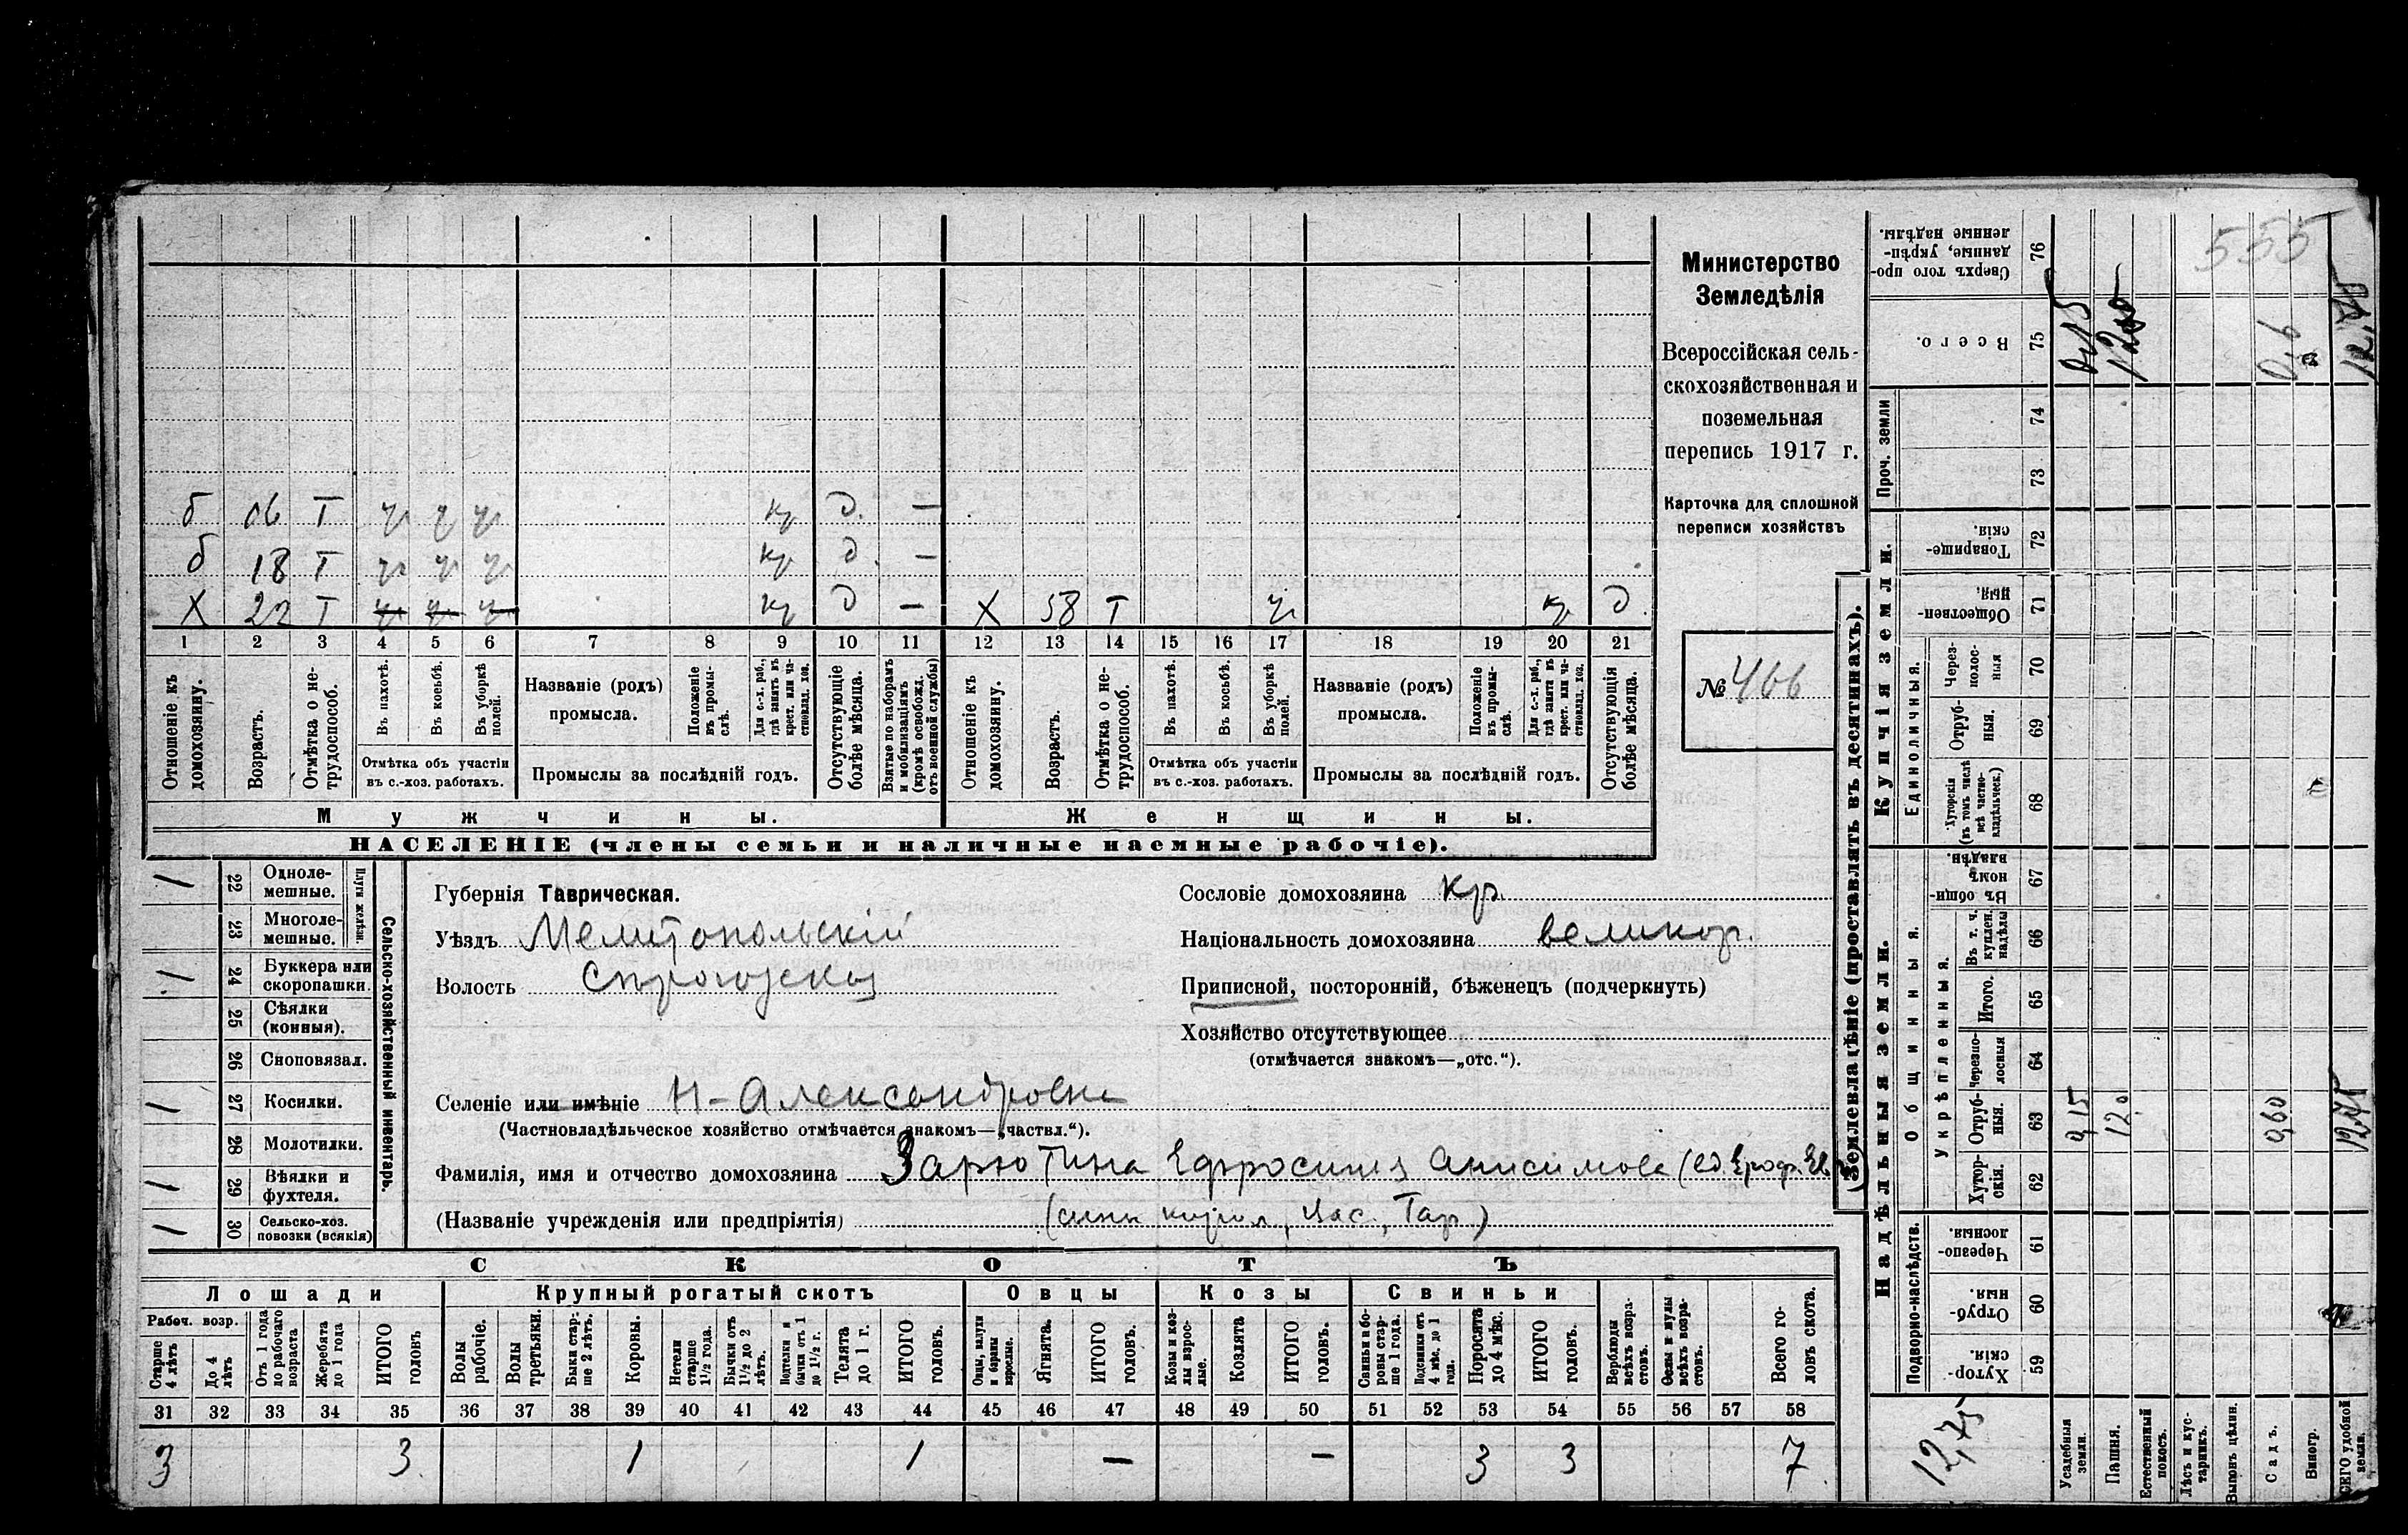 555
Министерство
Земледѣлія
Всероссійская сель-
скохозяйственная и
поземельная
перепись 1917 г.
Карточка для сплошной
переписи хозяйствъ
№ 466
б 06 Т ч ч ч кр д. —
б 18 Т ч ч ч кр д. —
Х 22 Т ч ч ч кр д — Х 58 Т ч кр д.
1 2 3 4 5 6 7 8 9 10 11 12 13 14 15 16 17 18 19 20 21
Отношеніе къ домохозяину.
Возрастъ.
Отмѣтка о не-трудоспособ.
Въ пахотѣ.
Въ косьбѣ.
Въ уборкѣ полей.
Отмѣтка объ участіи
въ с.-хоз. работахъ.
Названіе (родъ)
промысла.
Положеніе въ промы-слѣ.
Для с.-х. раб., гдѣ занятъ въ крест. или ча-стновлад. хоз.
Промыслы за послѣдній годъ.
Отсутствующіе болѣе мѣсяца.
Взятые по наборамъ и мобилизаціямъ (кромѣ освобожд. отъ военной службы)
Отношеніе къ домохозяину.
Возрастъ.
Отмѣтка о не-трудоспособ.
Въ пахотѣ.
Въ косьбѣ.
Въ уборкѣ полей.
Отмѣтка объ участіи
въ с.-хоз. работахъ.
Названіе (родъ)
промысла.
Положеніе въ промы-слѣ.
Для с.-х. раб., гдѣ занята въ крест. или ча-стновлад. хоз.
Промыслы за послѣдній годъ.
Отсутствующія болѣе мѣсяца.
Мужчины.
Женщины.
НАСЕЛЕНІЕ (члены семьи и наличные наемные рабочіе).
Сельско-хозяйственный инвентарь.
Плуги желѣзн.
1 22 Одноле-мешные.
23 Многоле-мешные.
1 24 Буккера или скоропашки.
25 Сѣялки (конныя).
26 Сноповязал.
1 27 Косилки.
28 Молотилки.
1 29 Вѣялки и фухтеля.
1 30 Сельско-хоз. повозки (всякія)
Губернія Таврическая.
Уѣздъ Мелитопольскій
Волость
Селеніе или имѣніе Н-Александровка
(Частновладѣльческое хозяйство отмѣчается знакомъ—„частвл.“).
Фамилія, имя и отчество домохозяина Зарютина Ефросинія Анисимова
(Названіе учрежденія или предпріятія)
Сословіе домохозяина кр.
Національность домохозяина великор.
Приписной, посторонній, бѣженецъ (подчеркнуть)
Хозяйство отсутствующее
(отмѣчается знакомъ—„отс.“).
СКОТЪ
Лошади
Крупный рогатый скотъ
Овцы
Козы
Свиньи
Рабоч. возр.
Старше 4 лѣтъ
До 4 лѣтъ
Отъ 1 года до рабочаго возраста
Жеребята до 1 года
ИТОГО головъ
Волы рабочіе.
Волы третьяки.
Быки стар-ше 2 лѣтъ.
Коровы.
Нетели старше 1½ года.
Бычки отъ 1½ до 2 лѣтъ.
Подтелки и бычки отъ 1 до 1½ г.
Телята до 1 г.
ИТОГО головъ.
Овцы, валухи и бараны взрослые.
Ягнята.
ИТОГО головъ.
Козы и коз-лы взрос-лые.
Козлята
ИТОГО головъ.
Свиньи и бо-ровы стар-ше 1 года.
Подсвинки отъ 4 мѣс. до 1 года.
Поросята до 4 мѣс.
ИТОГО головъ.
Верблюды всѣхъ возра-стовъ.
Ослы и мулы всѣхъ возра-стовъ.
Всего го-ловъ скота.
31 32 33 34 35 36 37 38 39 40 41 42 43 44 45 46 47 48 49 50 51 52 53 54 55 56 57 58
3 3 1 1 — — 3 3 7
Землевладѣніе (проставлять въ десятинахъ).
Надѣльныя земли.
Купчія земли.
Проч. земли
Подворно-наслѣдств.
Общинныя.
Укрѣпленныя.
Единоличныя.
Сверхъ того про-данные, укрѣп-ленные надѣлы. 76
Всего. 75
74
73
Товарище-скія. 72
Обществен-ныя. 71
Через-полос-ныя 70
Отруб-ныя. 69
Хуторскія (въ томъ числѣ всѣ частно-владѣльческ.) 68
Въ общи-номъ владѣн. 67
Въ т. ч. куплен. надѣлы 66
Итого. 65
Черезпо-лосныя 64
Отруб-ныя. 63
Хутор-скія. 62
Черезпо-лосныя 61
Отруб-ныя. 60
Хутор-скія. 59
0,15
120
0,60
12,75
Усадебныя земли.
Пашня.
Естественный покосъ.
Лѣсъ и кус-тарникъ.
Выгонъ цѣлин.
Садъ.
Виногр.
ВСЕГО удобной земли.